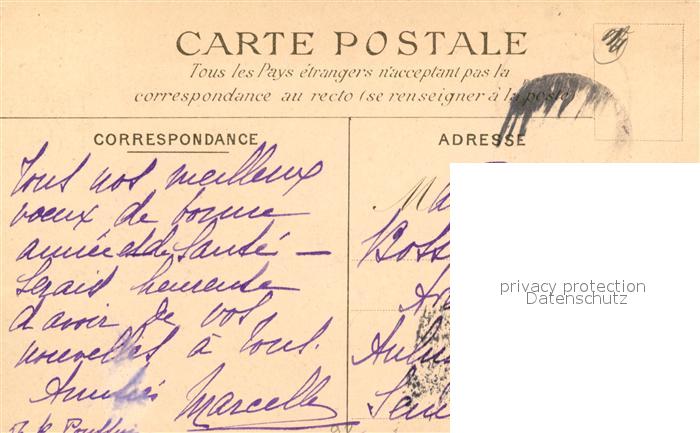 CARTE POSTALE
Tous les Pays étrangers n'acceptant pas la
correspondance au recto (se renseigner à la poste)
CORRESPONDANCE
Tous nos meilleux
voeux de bonne
année et de Santé —
Serais heureuse
d'avoir de vos
nouvelles à tous.
Amitiés Marcelle
ADRESSE
privacy protection
Datenschutz